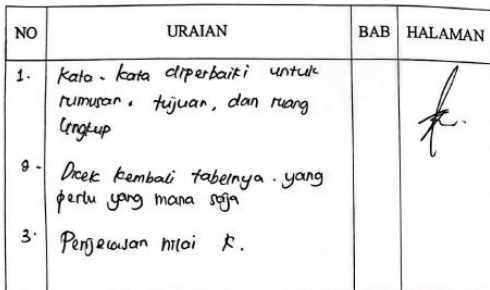 NO URAIAN BAB HALAMAN
1. Kata-kata diperbaiki untuk
rumusan, tujuan, dan ruang
lingkup
2. Dicek kembali tabelnya. yang
perlu yang mana saja
3. Penjelasan nilai R.